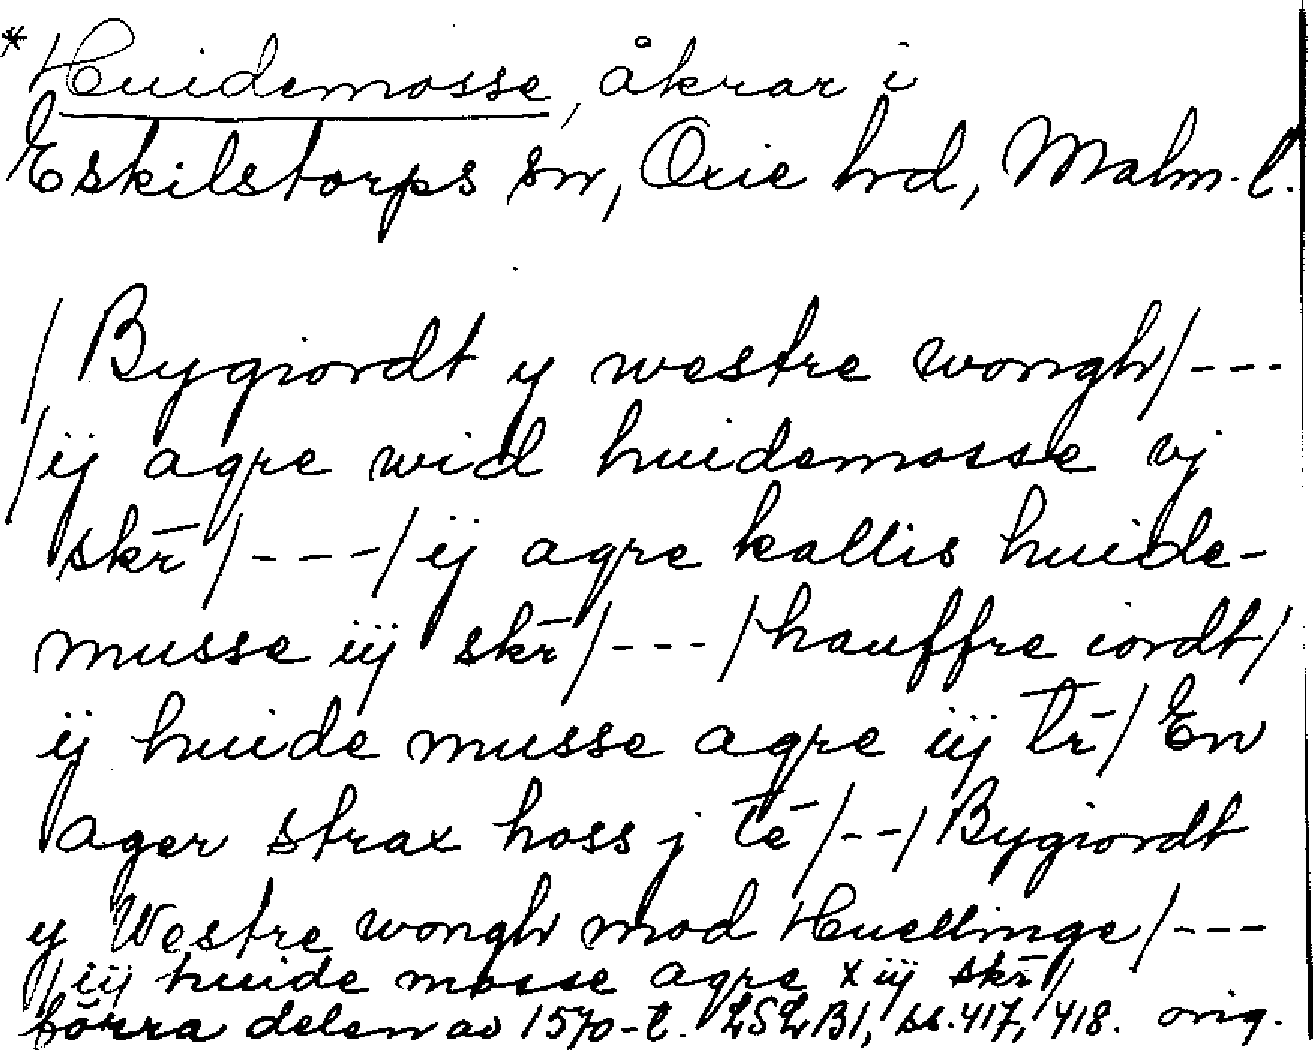 *Huidemosse, åkrar i
Eskilstorps sn, Oxie hd, Malm. l.
/Bygiordt y westre wongh/---
/ij agre wid huidemosse vj
skr̄/---/ij agre kallis huide-
musse iij skr̄/---/hauffre iordt/
ij huide musse agre iij t̄r̄/En
ager strax hoss j t̄ē/--/Bygiordt
y Westre wongh mod Huellinge/---
/iij huide mosse agre xiij skr̄/
förra delen av 1570-t. LSLB1, ss. 417, 418. orig.